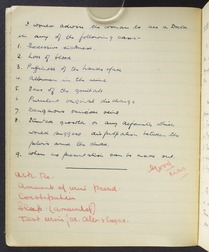 I would advise the woman to see a Doctor
in any of the following cases:-
1. Excessive sickness.
2. Loss of blood
3. Puffiness of the hands & face
4. Albumen in the urine
5. Sores of the genitals
6. Purulent vaginal discharge
7. Varicose veins
8. Stunted growth or any deformity which
would suggest disproportion between the
pelvis and the child.
9. When no presentation can be made out.
Good
Ask Re.
Amount of urine passed
Constipation
Sleep (amount of)
Test urine for Alb. & Sugar.